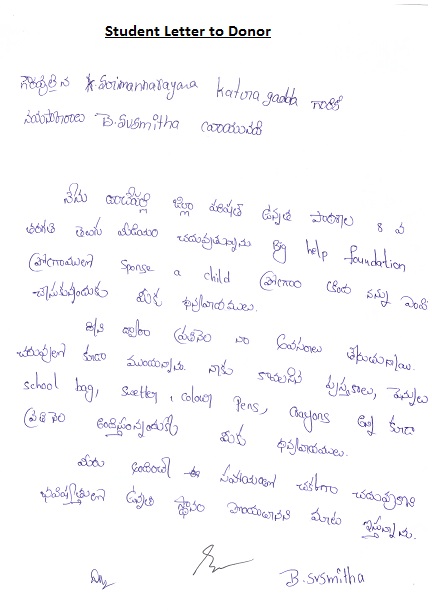 Student Letter to Donor
గౌరవనీయులైన K. Srimannarayana Katuragadda గారికి
నమస్కారాలు B. Susmitha వ్రాయునది
నేను జిల్లా పరిషత్ ఉన్నత పాఠశాల 8 వ
తరగతి తెలుగు మీడియం చదువుతున్నాను Big help foundation
ప్రోగ్రాములో Sponse a child ప్రోగ్రాం కింద నన్ను ఎంపిక
చేసుకున్నందుకు మీకు ధన్యవాదములు.
దీని ద్వారా ప్రతినెల నా అవసరాలు తీరుచున్నాయి.
చదువులో కూడా నాకు కావలసిన పుస్తకాలు, పెన్నులు
school bag, sweeter, colour pens, crayons అన్ని కూడా
ప్రతి నెల అందిస్తున్నందుకు మీకు ధన్యవాదములు.
మీరు అందించే ఈ సహాయంతో చక్కగా చదువుకొని
భవిష్యత్తులో ఉన్నత స్థానం పొందుతానని మాట ఇస్తున్నాను.
B. Susmitha